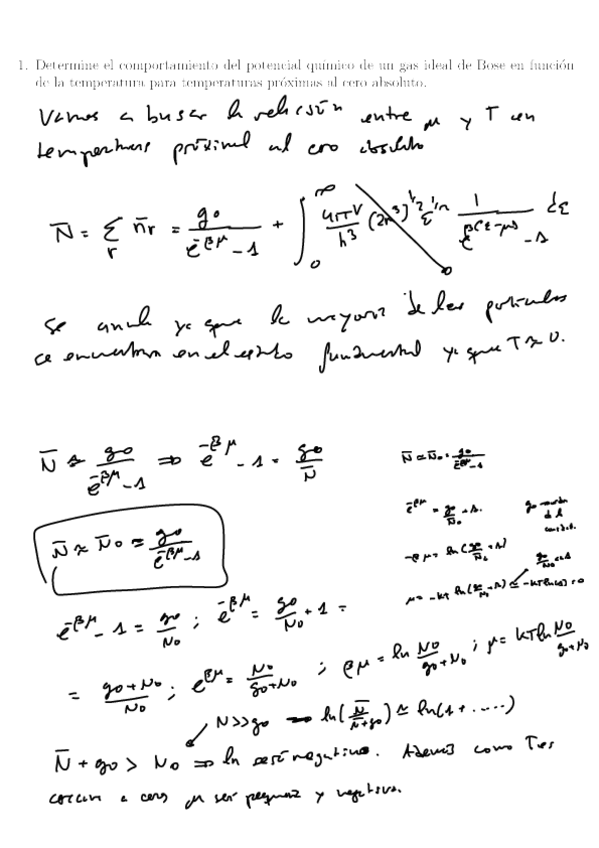 1. Determine el comportamiento del potencial químico de un gas ideal de Bose en función
de la temperatura para temperaturas próximas al cero absoluto.
Vamos a buscar la relación entre μ y T en
temperaturas próximas al cero absoluto
N̄ = Σ_r n̄r = g0/(e^{-βμ} - 1) + ∫_0^∞ 4πV/h³ (2m³)^{1/2} ε^{1/2} 1/(e^{β(ε-μ)} - 1) dε
0
Se anula ya que la mayoría de las partículas
se encuentran en el estado fundamental ya que T ≈ 0.
N̄ ≈ g0/(e^{-βμ} - 1) ⇒ e^{-βμ} - 1 = g0/N̄
N̄ ≈ N̄0 = g0/(e^{-βμ} - 1)
e^{-βμ} - 1 = g0/N0 ; e^{-βμ} = g0/N0 + 1 =
= (g0 + N0)/N0 ; e^{βμ} = N0/(g0 + N0) ; βμ = ln N0/(g0 + N0) ; μ = kT ln N0/(g0 + N0)
N >> g0 → ln(N̄/(N̄ + g0)) ≈ ln(1 + ....)
N̄ + g0 > N0 ⇒ ln será negativo. Además como T es
cercana a cero μ será pequeña y negativa.
N̄ ≈ N̄0 = g0/(e^{-βμ} - 1)
e^{-βμ} = g0/N0 + 1.
-βμ = ln(g0/N0 + 1)
g0/N0 << 1
μ = -kT ln(g0/N0 + 1) ≈ -kT ln(1) = 0